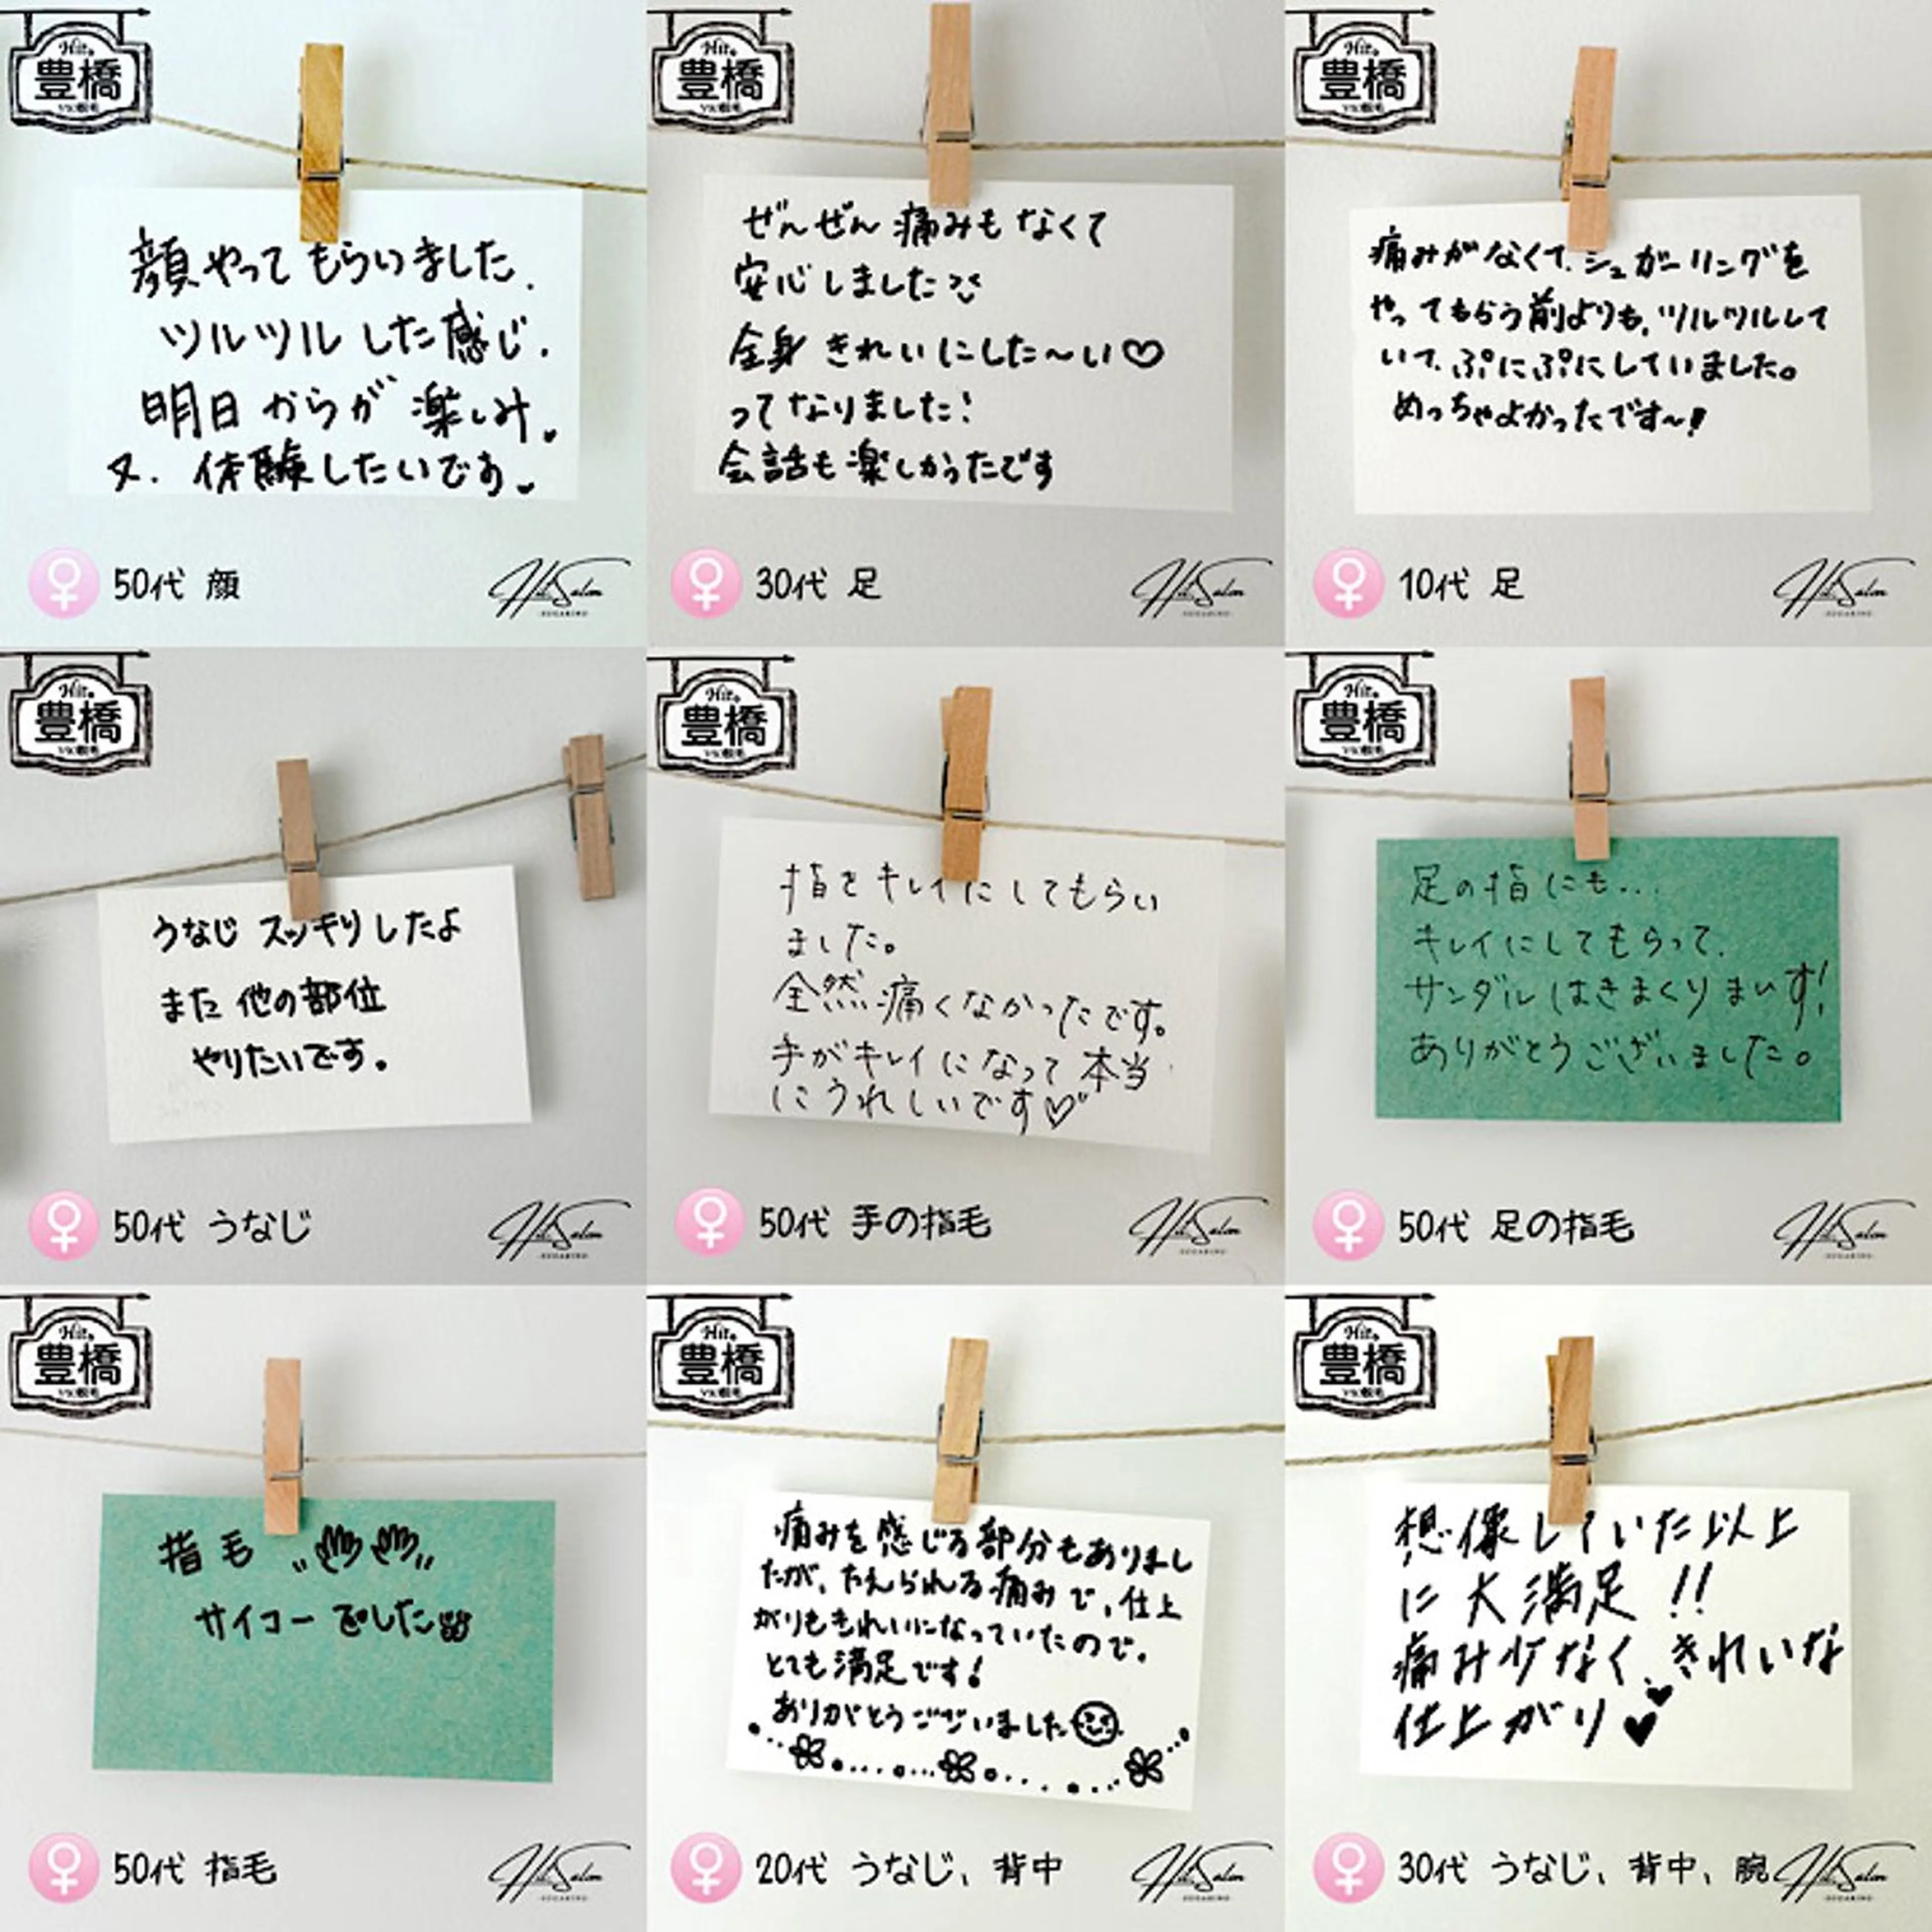 Hit.
豊橋
顔やってもらいました.
ツルツルした感じ.
明日からが楽しみ.
又.体験したいです
50代 顔
Hit. Salon
SUGARING
Hit.
豊橋
ぜんぜん痛みもなくて
安心しました
全身きれいにした〜い♡
ってなりました!
会話も楽しかったです
30代 足
Hit. Salon
SUGARING
Hit.
豊橋
痛みがなくて、シュガーリングを
やってもらう前よりも、ツルツルして
いて、ぷにぷにしていました。
めっちゃよかったです〜!
10代 足
Hit. Salon
SUGARING
Hit.
豊橋
うなじ スッキリしたよ
また他の部位
やりたいです。
50代 うなじ
Hit. Salon
SUGARING
Hit.
豊橋
指をキレイにしてもらい
ました。
全然痛くなかったです。
手がキレイになって本当
にうれしいです♡
50代 手の指毛
Hit. Salon
SUGARING
Hit.
豊橋
足の指にも...
キレイにしてもらって、
サンダルはきまくりまいす!
ありがとうございました。
50代 足の指毛
Hit. Salon
SUGARING
Hit.
豊橋
指毛
サイコーでした
50代 指毛
Hit. Salon
SUGARING
Hit.
豊橋
痛みを感じる部分もありまし
たが、たえられる痛みで、仕上
がりもきれいになっていたので、
とても満足です!
ありがとうございました
20代 うなじ、背中
Hit. Salon
SUGARING
Hit.
豊橋
想像していた以上
に大満足!!
痛み少なく、きれいな
仕上がり♥
30代 うなじ、背中、腕
Hit. Salon
SUGARING